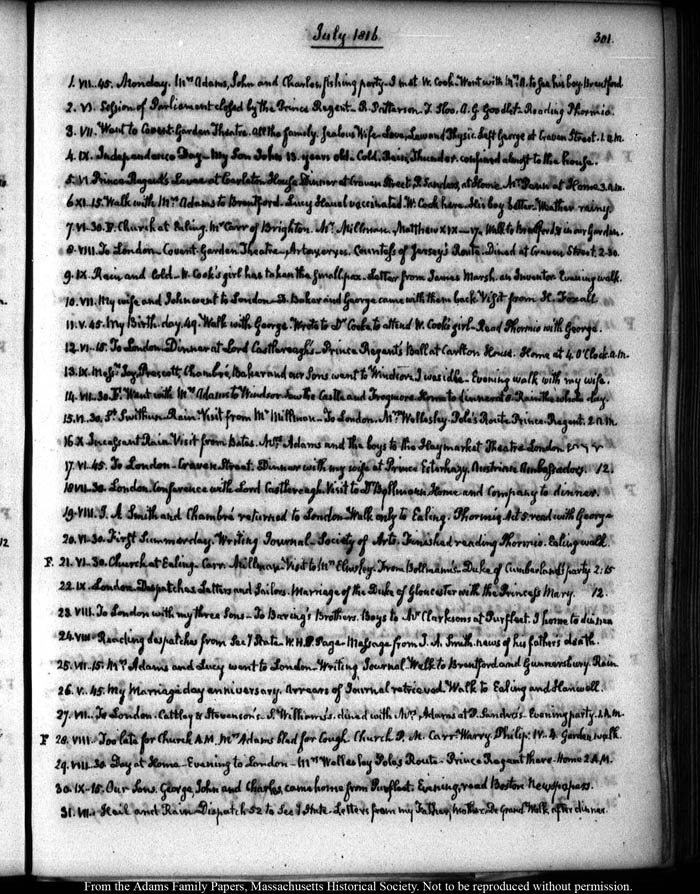 July 1816
301.
1. VII.45. Monday. Mrs Adams, John and Charles, fishing party. I met W. Cook. Went with Mrs A. to see his boy. Brentford
2. VI. Session of Parliament closed by the Prince Regent. R. Patterson. T. Hoo. A. G. Goodlet. Reading Phormio.
3. VII. Went to Covent Garden Theatre. All the family. Jealous Wife. Love, Law and Physic. Left George at Craven Street. 1 A.M.
4. IX. Independence Day. My Son John 13. years old. Cold, Rain, Thunder. confined almost to the house.
5. VI. Prince Regent's Levee at Carleton House. Dinner at Craven Street. P. Sanders, at Home. Mrs at Home 3. A.M.
6. XI.15. Walk with Mrs Adams to Brentford. Lucy vaccinated. W. Cook here. His boy better. Weather rainy.
7. VI.30. F. Church at Ealing. Mr Carr of Brighton. Mr Millman. Matthew XIX-17. Walk to Brentford & in our Garden.
8. VIII. To London. Covent Garden Theatre. Artaxerxes. Countess of Jersey's Route. Dined at Craven Street. 2.30.
9. IX. Rain and Cold. W. Cook's girl has taken the Small pox. Letter from James Marsh. an Inventor. Evening walk.
10. VII. My wife and John went to London. D. Baker and George came with them back. Visit from H. Foxall
11. V.45. My Birth-day. 49. Walk with George. Wrote to Dr Cooke to attend W. Cook's girl. Read Phormio with George.
12. VI.15. To London. Dinner at Lord Castlereagh's. Prince Regent's Ball at Carlton House. Home at 4. O'Clock. A.M.
13. IX. Messrs Joy, Prescott, Chambré, Baker and our Sons went to Windsor. I was idle. Evening walk with my wife.
14. VII.30. F. Went with Mrs Adams to Windsor. Saw the Castle and Frogmore. Home to dinner at 8. Rain the whole day.
15. VI.30. St Swithun. Rain. Visit from Mr Millman. To London. Mrs Wellesley-Pole's Route. Prince-Regent. 2 A.M.
16. X. Incessant Rain. Visit from Bates. Mrs Adams and the boys to the Haymarket Theatre London
17. VI.45. To London. Craven Street. Dinner with my wife at Prince Esterhazy, Austrian Ambassadors. 12.
18. VII.30. London. Conference with Lord Castlereagh. Visit to Dr Bollmann. Home and Company to dinner.
19. VIII. J. A. Smith and Chambré returned to London. Walk only to Ealing. Phormio Act 5. read with George
20. VI.30. First Summer day. Writing Journal. Society of Arts. Finished reading Phormio. Ealing walk.
F. 21. VI.30. Church at Ealing. Carr. Millman. Visit to Mr Elmsley. From Bollman's. Duke of Cumberland's party. 2.15
22. IX. London. Despatches Letters and Sailors. Marriage of the Duke of Gloucester with the Princess Mary. 12.
23. VIII. To London with my three Sons. To Baring's Brothers. Boys to Mr Clarksons at Purfleet. I home to dinner
24. VIII. Reading despatches from Secy State. W. H. D. Page. Message from J. A. Smith. news of his father's death.
25. VII.15. Mrs Adams and Lucy went to London. Writing Journal. Walk to Brentford and Gunnersbury. Rain
26. V.45. My Marriage day anniversary. Arrears of Journal retrieved. Walk to Ealing and Hanwell.
27. VII. To London. Cattley & Stevenson's. S. Williams's. dined with Mrs Adams at P. Sanders's. Evening party. 1. A.M.
F 28. VIII. Too late for Church A.M. Mrs Adams bled for Cough. Church P.M. Carr. Warry. Philip: IV. 4. Garden walk.
29. VIII.30 Day at Home. Evening to London. Mrs Wellesley Poles Route. Prince Regent there. Home 2 A.M.
30. IX.15. Our Sons, George, John and Charles, came home from Purfleet. Evening, read Boston Newspapers.
31. VII. Hail and Rain. Dispatch 52 to Secy State. Letters from my Father, Mother, De Grand. Walk, after dinner.
12
From the Adams Family Papers, Massachusetts Historical Society. Not to be reproduced without permission.